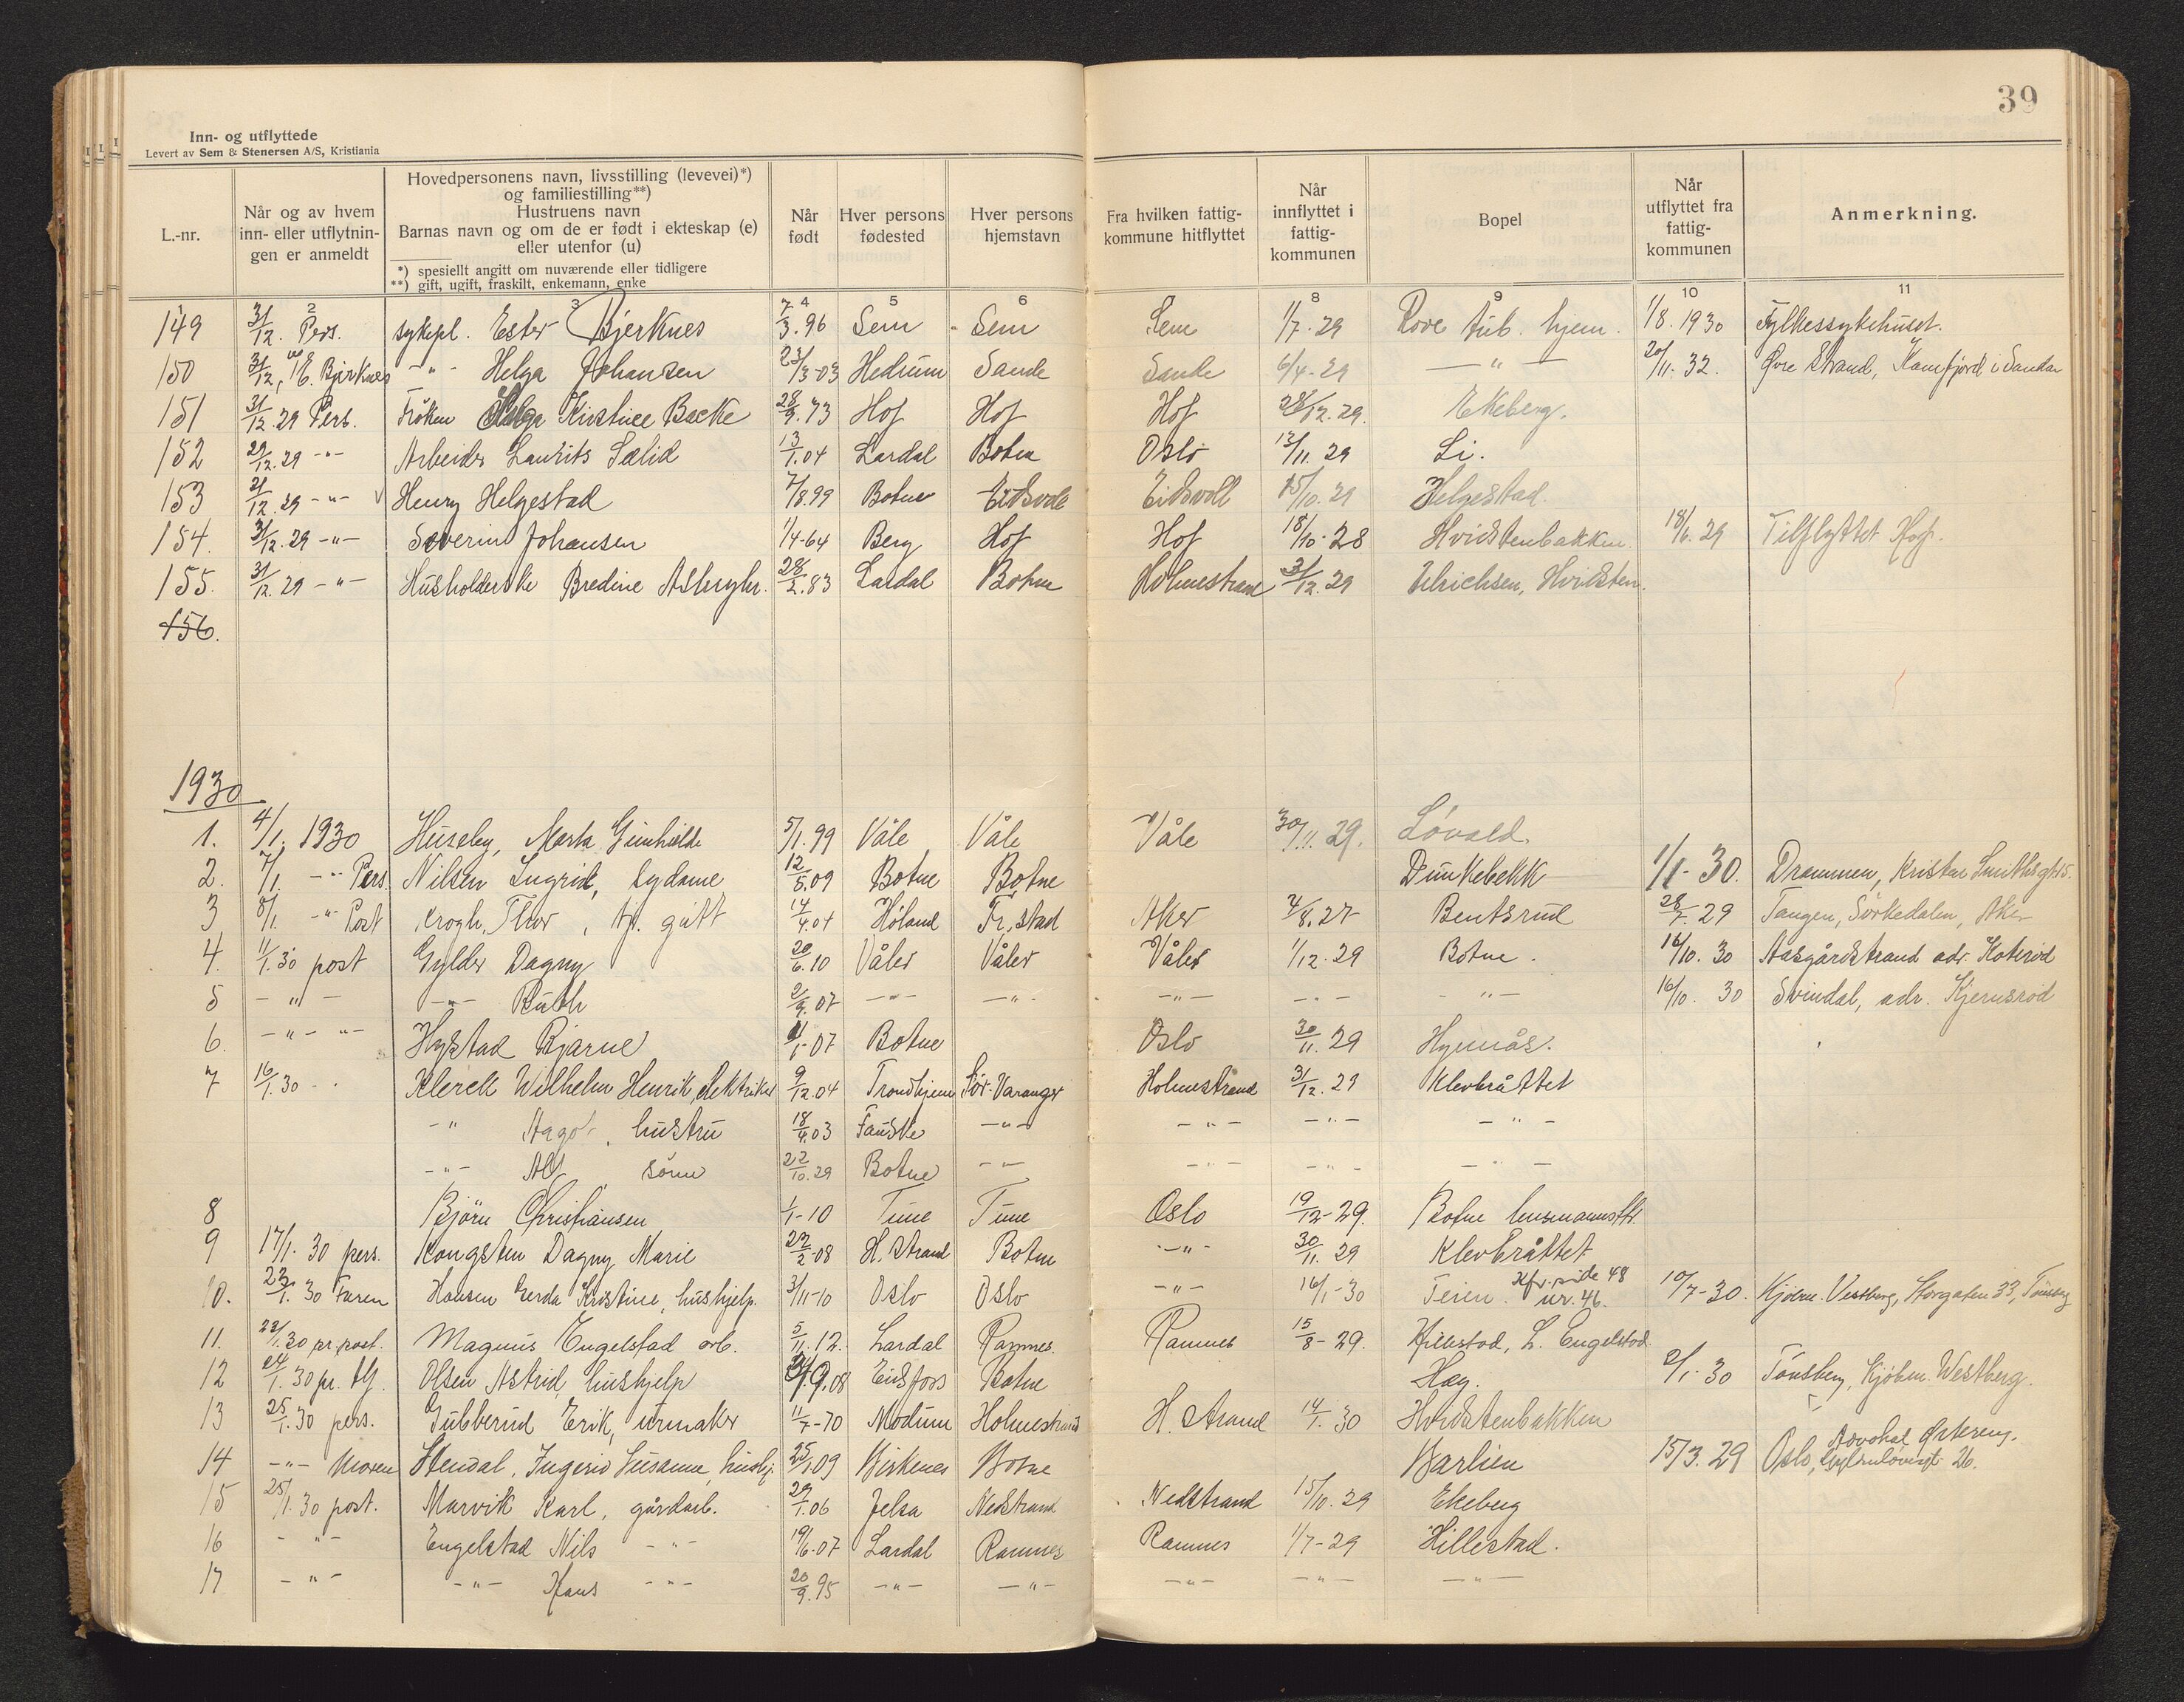 39
Inn- og utflyttede
Levert av Sem & Stenersen A/S, Kristiania
L.-nr.
Når og av hvem inn- eller utflytnin- gen er anmeldt
Hovedpersonens navn, livsstilling (levevei)*) og familiestilling**) Hustruens navn Barnas navn og om de er født i ekteskap (e) eller utenfor (u)
*) spesiellt angitt om nuværende eller tidligere
**) gift, ugift, fraskilt, enkemann, enke
Når født
Hver persons fødested
Hver persons hjemstavn
Fra hvilken fattig- kommune hitflyttet
Når innflyttet i fattig- kommunen
Bopel
Når utflyttet fra fattig- kommunen
Anmerkning.
2 3 4 5 6 8 9 10 11
149 31/12. Pers. sykepl. Ester Bjerknes 7/3.96 Sem Sem Sem 1/7.29 Rove tub. hjem. 1/8.1930 Fylkessykehuset.
150 31/12, E. Bjerknes -"- Helga Johansen 23/3-03 Hedrum Sande Sande 6/4-29 -"- 20/11.32. Øvre Strand, Kamfjord i Sandar
151 31/12.29 Pers. Frøken Helga Kristine Backe 28/9.73 Hof Hof Hof 28/12.29. Ekeberg.
152 29/12.29 -"- Arbeider Laurits Sælid 13/1.04 Lardal Botne Oslo 13/11.29 Li.
153 21/12.29 -"- Henry Helgestad 7/8.99 Botne Eidsvoll Eidsvoll 15/10.29 Helgestad.
154. 31/12.29 -"- Severin Johansen 1/4-64 Berg Hof Hof 18/10-28 Hvidstenbakken. 18/6.29 Tilflyttet Hof.
155. 31/12.29 -"- Husholderske Bredine 28/2.83 Lardal Botne Holmestrand 31/12.29 Ulrichsen, Hvidsten.
156.
1930
1. 4/1. 1930 Huseby, Marta Gunhilde 5/1.99 Våle Våle Våle 30/11.29. Løvald.
2. 7/1. -"- Pers. Nilsen Ingrid, sydame 12/5.09 Botne Botne Dunkebekk 1/1-30. Drammen, Kristen Smithsgt
3 8/1. -"- Post Krogh, Thor, gått 14/4.04 Høland Fr.stad Aker 4/8.27 Bentsrud 28/7.29 Tangen, Sørkedalen, Aker
4. 11/1.30 post Gylder Dagny 20/6.10 Våler Våler Våler 1/12.29 Botne. 16/10.30 Aasgårdstrand adr.
5 -"- -"- Ruth 2/9.07 -"- -"- -"- -"- -"- 16/10. 30 Svindal, adr. Kjernsrød
6. -"- -"- Hystad Bjarne 1/1-07 Botne Oslo 30/11.29 Hynnås.
7 16/1.30 -"- Klerck Wilhelm Henrik, elektriker 9/12.04 Trondhjem Sør-Varanger Holmestrand 31/12.29 Klevbråttet
-"- Aagot, hustru 18/4.03 Fauske -"- -"- -"- -"-
-"- Alf, sønn 22/10.29 Botne -"- -"- -"- -"-
8 Bjørn Christiansen 1/1-10 Tune Tune Oslo 19/12-29. Botne
9 17/1.30 pers. Kongsten Dagny Marie 22/2-08 H.strand Botne -"- 30/11.29 Klevbråttet
10. 23/1.30 Faren Hansen Gerda Kristine, hushjelp. 3/11-10 Oslo Oslo -"- 16/1-30 Teien. Kfr. side 48 nr. 46. 10/7-30. Kjøbm. Vestberg, Storgaten 33, Tønsberg
11. 23/1.30 pr. post. Magnus Engelstad arb. 5/11.12. Lardal Ramnes. Ramnes 15/8-29. Hillestad, L. Engelstad
12 24/1.30 pr. Olsen Astrid, hushjelp 9.08 Eidsfoss Botne Hag. 2/1.30 Tønsberg, Kjøbm. Westberg.
13 25/1.30 pers. Gubberud Erik, urmaker 11/7-70 Modum Holmestrand H.strand 14/1.30 Hvidstenbakken
14 -"- Moren Stendal, Ingerid Susanne, hushj. 25/1.09 Birkenes Botne Barlien 15/3.29 Oslo, Advokat Østereng, Gyldenløvesgt. 26.
15 25/1.30 post. Marvik Karl, gårdarb. 29/1.06 Jelsa Nedstrand Nedstrand 15/10.29 Ekeberg
16 -"- Engelstad Nils -"- 19/6-07 Lardal Ramnes Ramnes 1/7-29 Hillestad.
17 -"- -"- Hans -"- 20/9.95 -"- -"- -"- -"- -"-